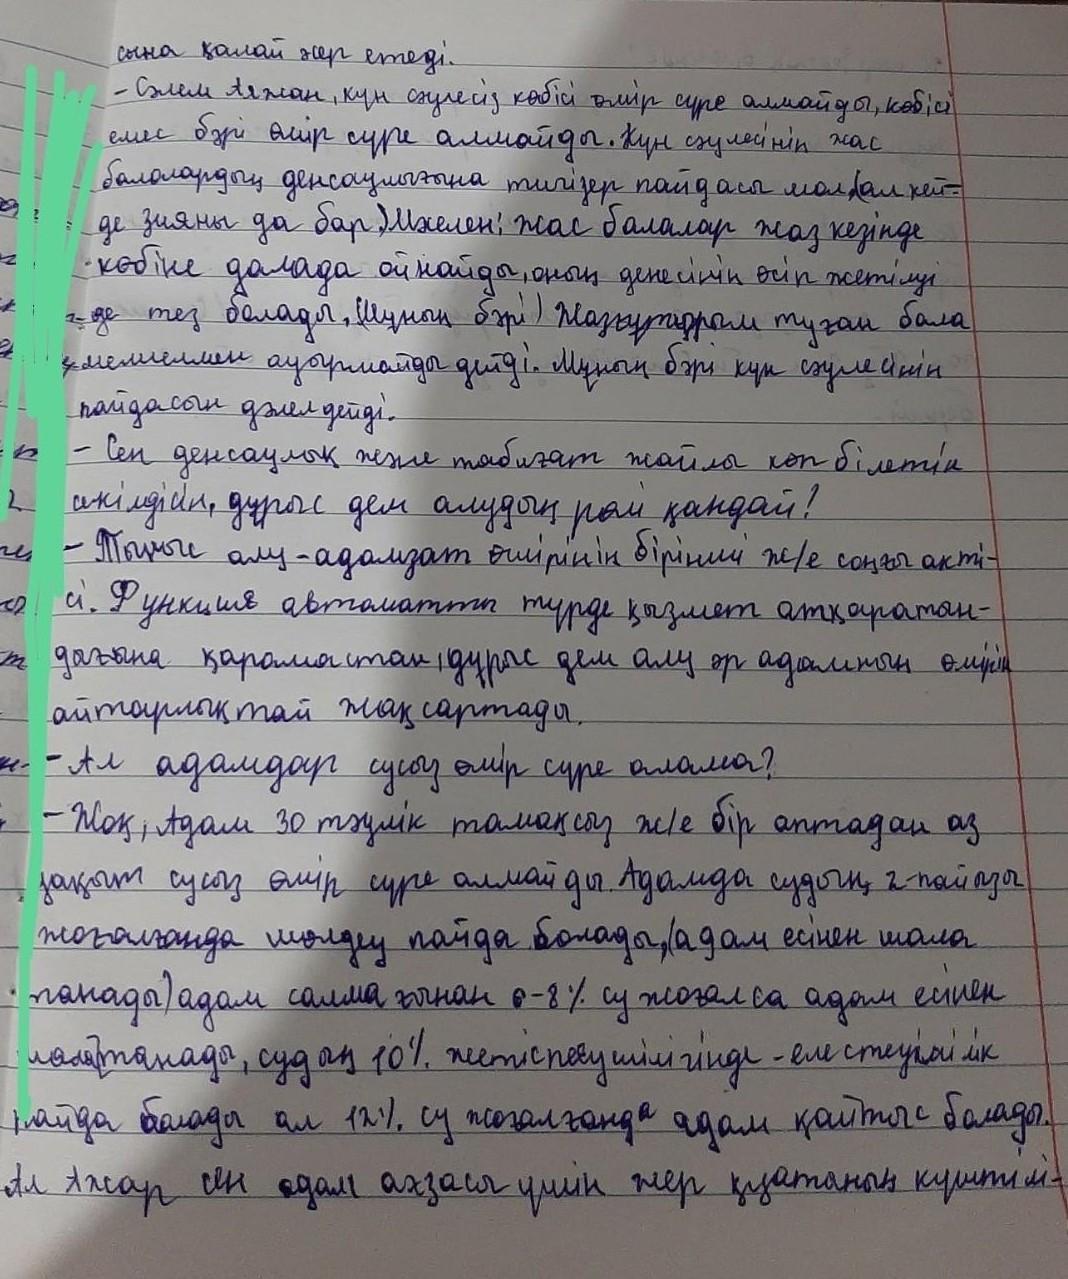 сына қалай әсер етеді.
- Сәлем Аяжан, күн сәулесіз көбісі өмір сүре алмайды, көбісі
емес бәрі өмір сүре алмайды. Күн сәулесінің жас
балалардың денсаулығына тигізер пайдасы мол (ал кей-
де зияны да бар) Мәселен: жас балалар жаз кезінде
көбіне далада ойнайды, оның денесінің өсіп жетілуі
де тез болады, (Мұның бәрі) Жазғытұрым туған бала
мешелмен ауырмайды дейді. Мұның бәрі күн сәулесінің
пайдасын дәлелдейді.
- Сен денсаулық және табиғат жайлы көп білетін
секілдісің, дұрыс дем алудың рөлі қандай?
- Тыныс алу - адамзат өмірінің бірінші ж/е соңғы акті-
сі. Функция автоматты түрде қызмет атқаратын-
дығына қарамастан, дұрыс дем алу әр адамның өмірін
айтарлықтай жақсартады.
- Ал адамдар сусыз өмір сүре алама?
- Жоқ, Адам 30 тәулік тамақсыз ж/е бір аптадан аз
уақыт сусыз өмір сүре алмайды. Адамда судың 2-пайызы
жоғалғанда шөлдеу пайда болады, (адам есінен шала
танады) адам салмағынан 6-8% су жоғалса адам есінен
танады, судың 10% жетіспеушілігінде - елестеушілік
пайда болады ал 12% су жоғалғанда адам қайтыс болады.
Ал Ажар сен адам ағзасы үшін жер қуатының күштілі-